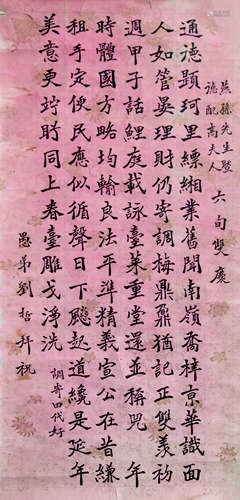 燕孫先生暨
德配高夫人 六旬雙慶
通德題珂里縹緗業舊聞南嶺喬梓京華識面
人如管晏理財仍寄調梅鼎鼐猶記正雙羨初
週甲子話鯉庭載詠臺萊重堂還並稱兕 年
時體國方略均輸良法平準精義宣公在昔縑
租手定使民應似循聲日下飈起道纔是延年
美意更竚盼同上春臺雕戈淨洗
調寄四代好
愚弟劉哲拜祝